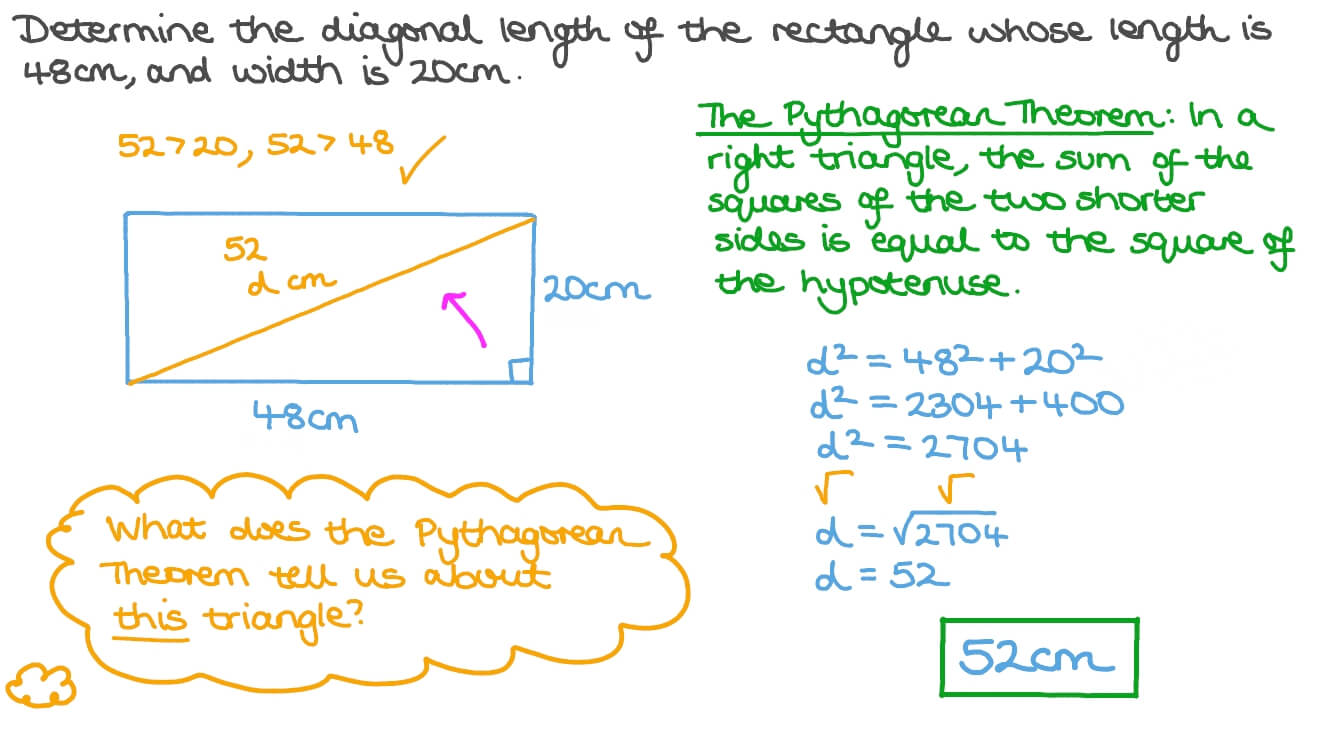 Determine the diagonal length of the rectangle whose length is
48cm, and width is 20cm.
52>20, 52>48 ✓
52
d cm
20cm
48cm
What does the Pythagorean
Theorem tell us about
this triangle?
The Pythagorean Theorem: In a
right triangle, the sum of the
squares of the two shorter
sides is equal to the square of
the hypotenuse.
d² = 48² + 20²
d² = 2304 + 400
d² = 2704
√ √
d = √2704
d = 52
52cm